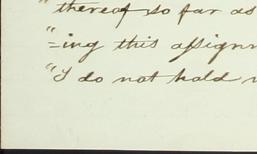 "thereof so far as
"=ing this assign
"I do not hold